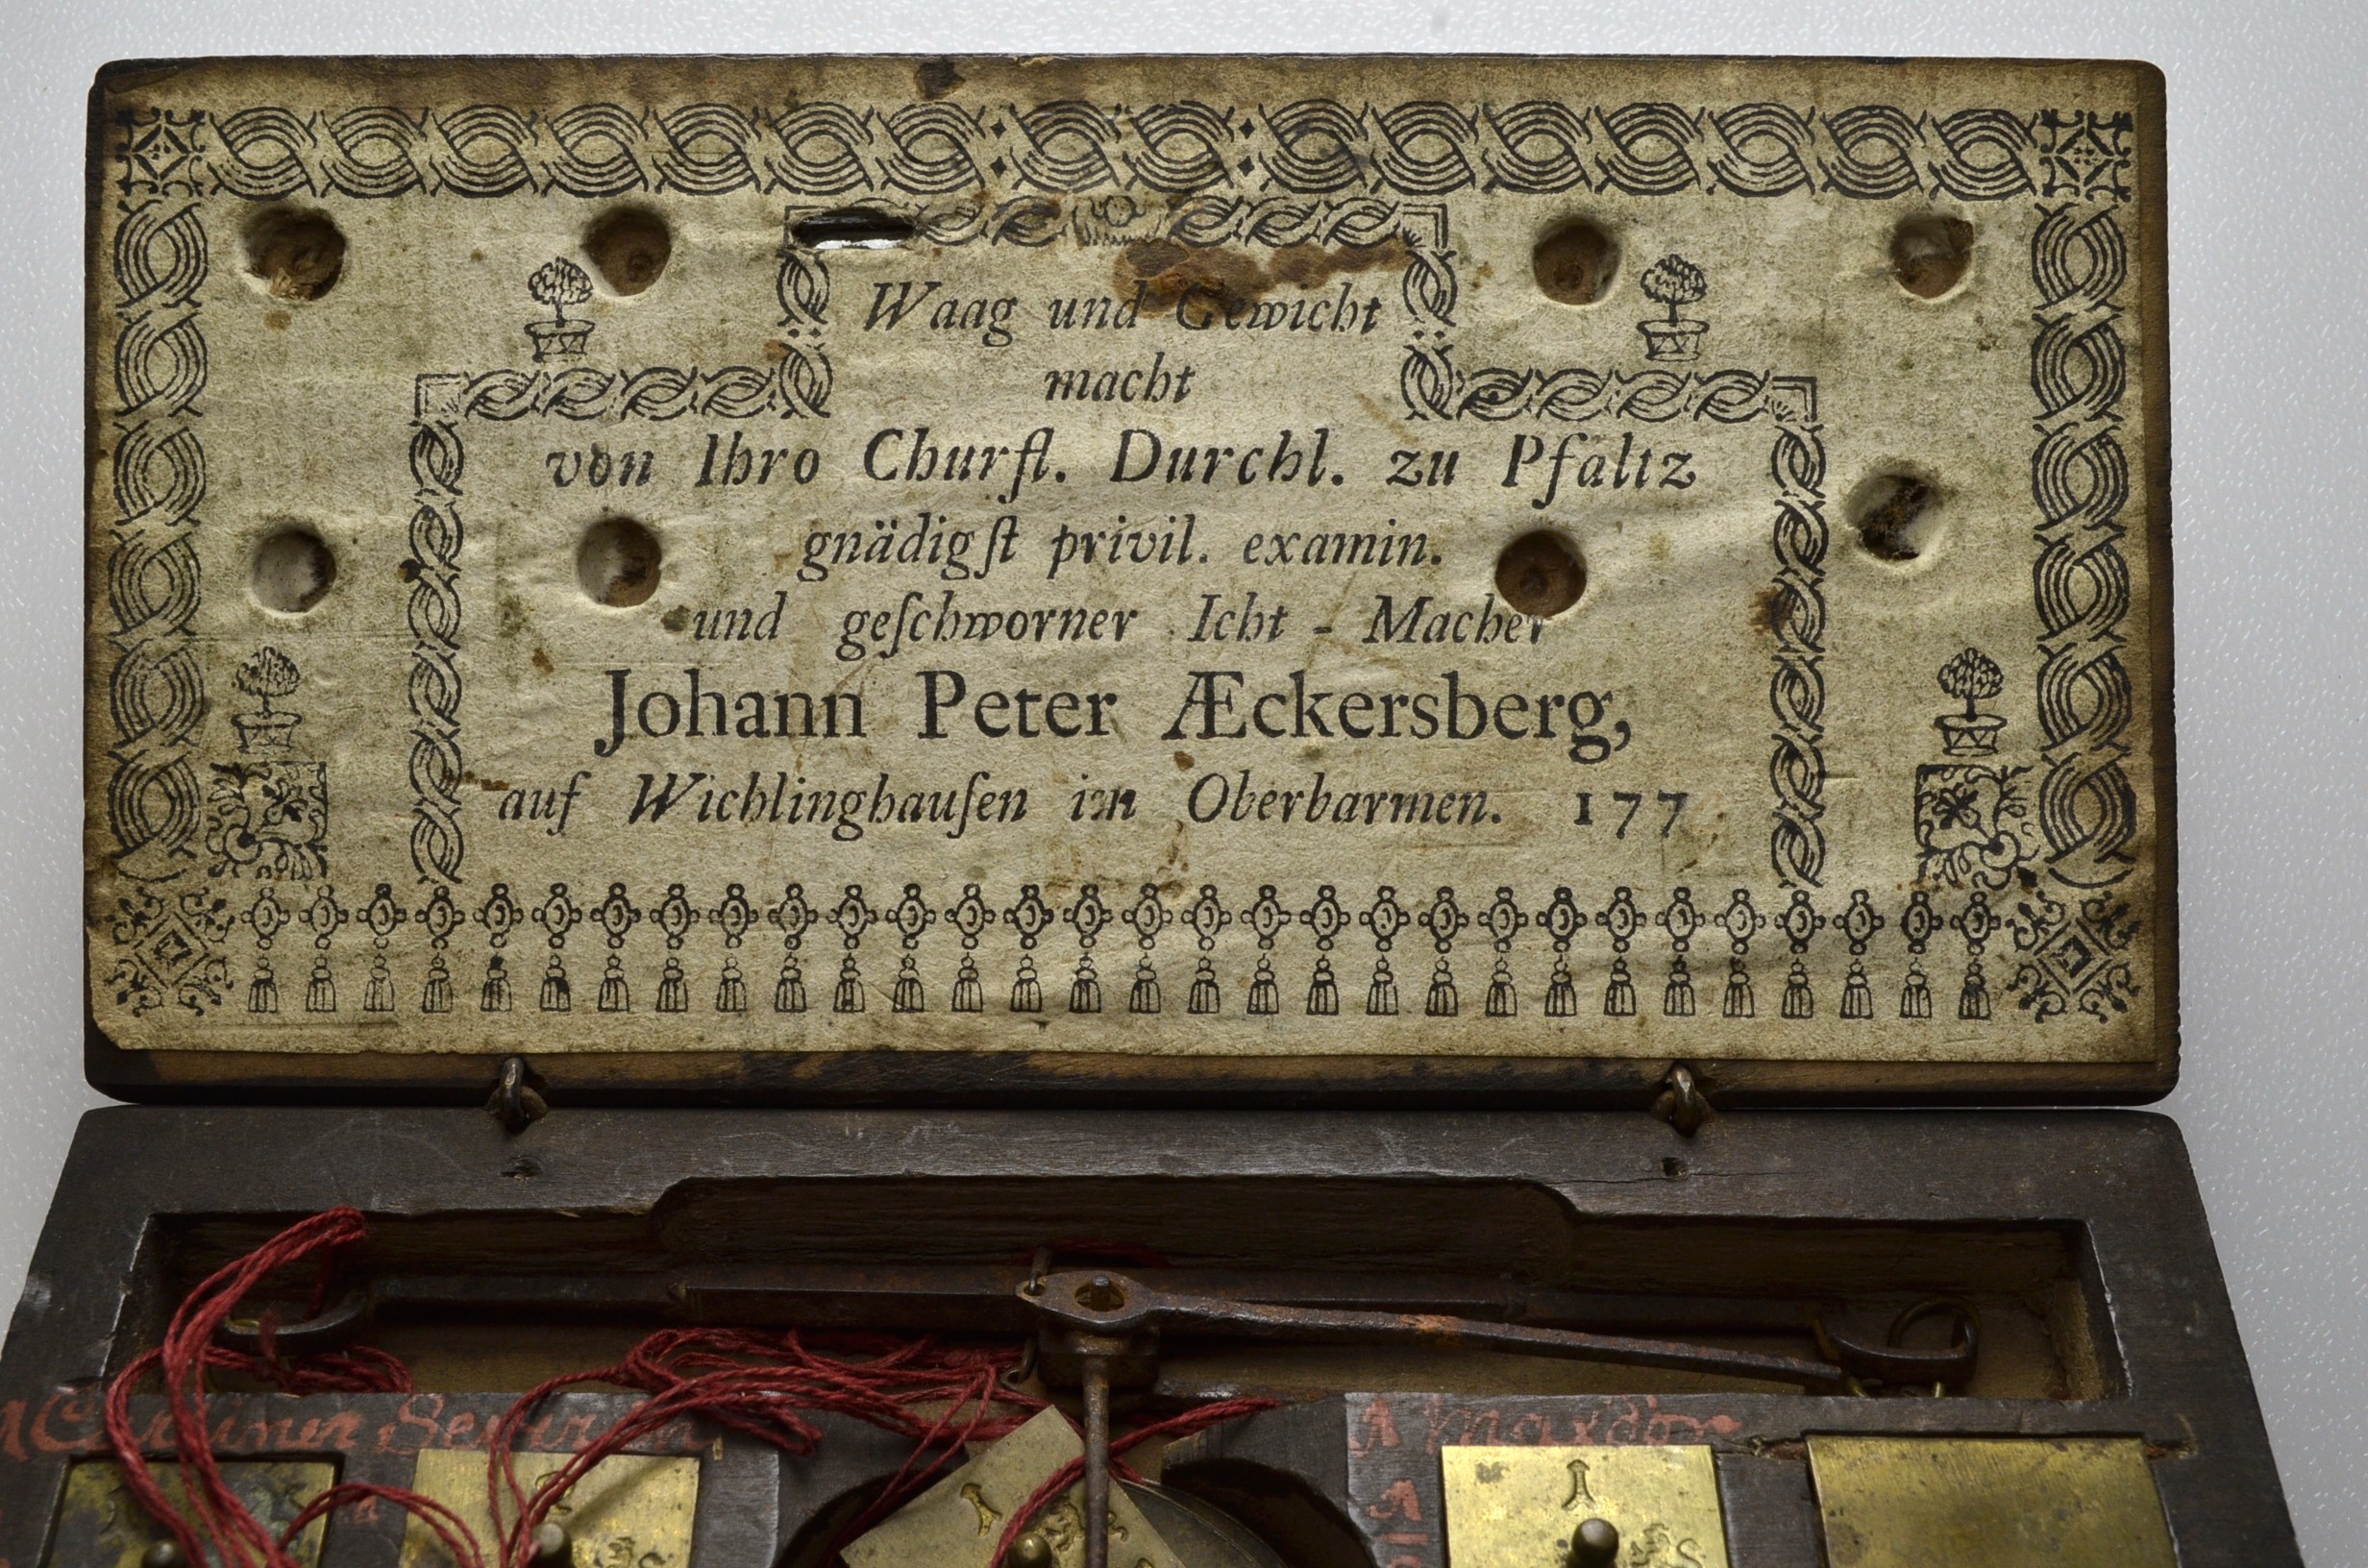 Waag und Gewicht
macht
von Ihro Churfl. Durchl. zu Pfaltz
gnädigſt privil. examin.
und geſchworner Icht - Macher
Johann Peter Æckersberg,
auf Wichlinghauſen im Oberbarmen. 177
A Maxdor